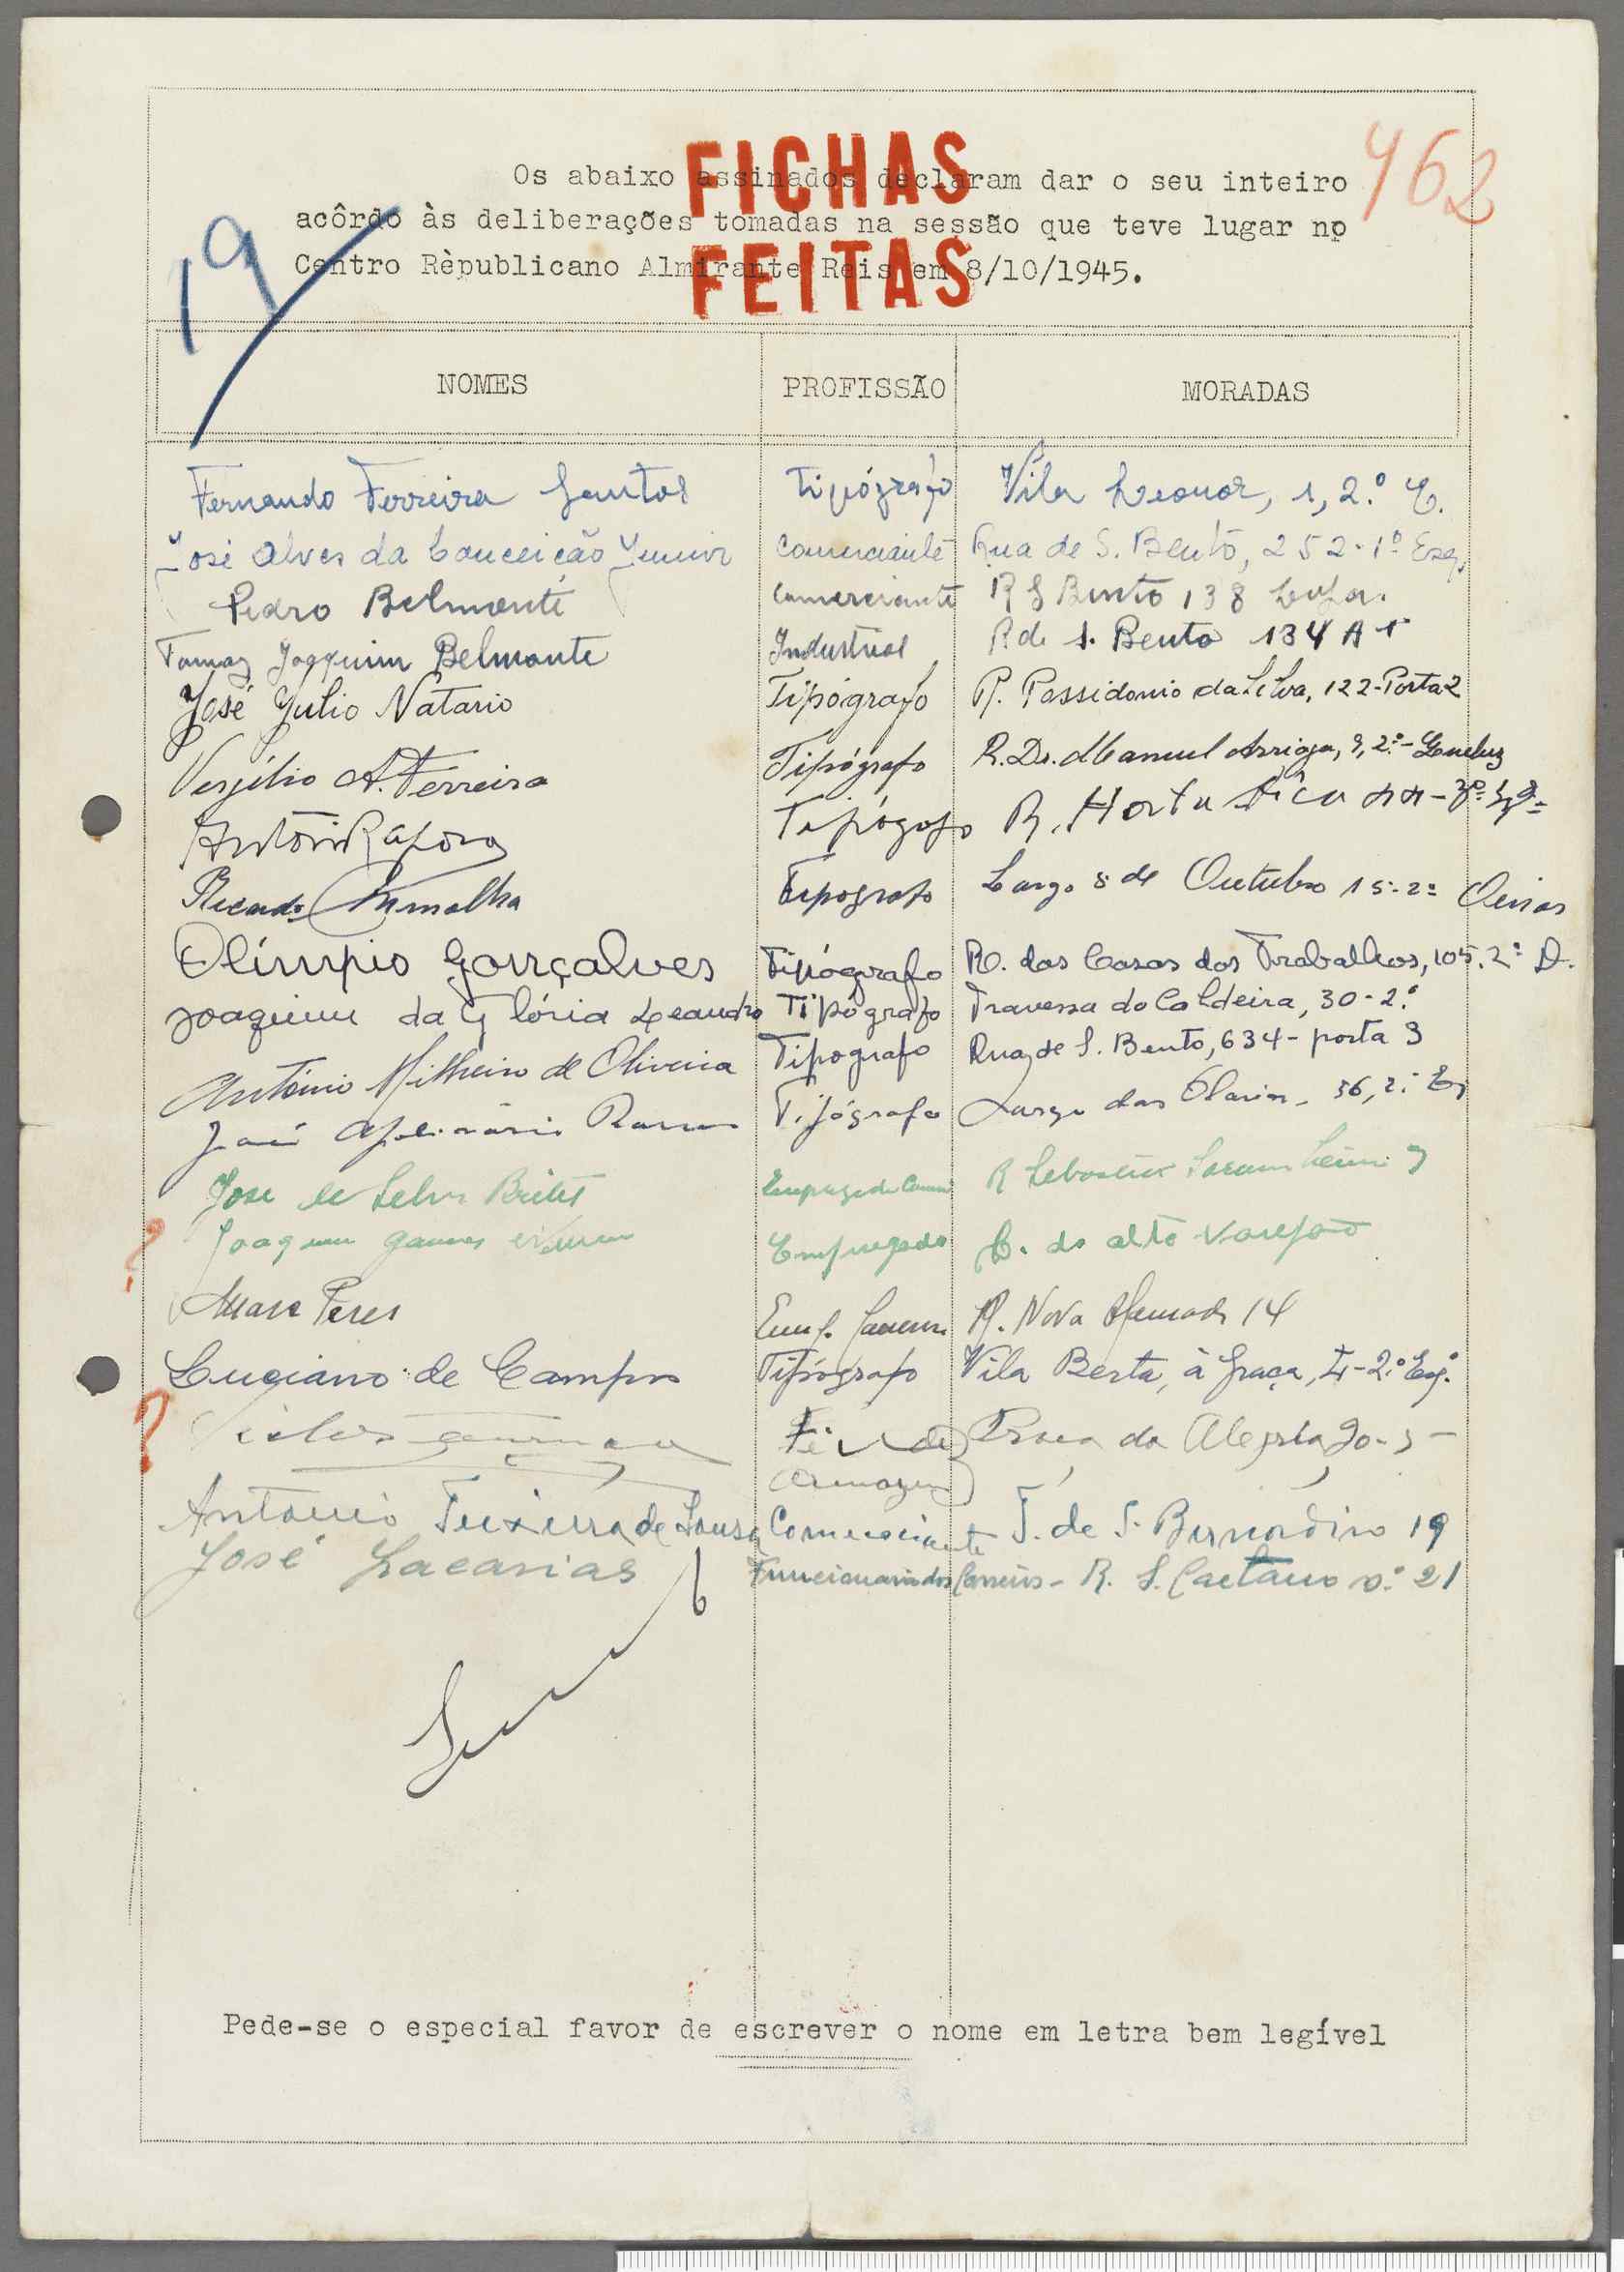 FICHAS
FEITAS
462
19
Os abaixo assinados declaram dar o seu inteiro
acôrdo às deliberações tomadas na sessão que teve lugar no
Centro Rèpublicano Almirante Reis em 8/10/1945.
NOMES PROFISSÃO MORADAS
Fernando Ferreira Santos Tipógrafo Vila Leonor, 1, 2.º E.
José Alves da Conceição Junior Comerciante Rua de S. Bento, 252-1º Esq.
Pedro Belmonte Comerciante R S Bento 138
Tomaz Joaquim Belmonte Industrial R de S. Bento 134 A 1º
José Julio Natario Tipógrafo R. Possidonio da Silva, 122-Porta 2
Vergilio A. Ferreira Tipógrafo R. Dr. Manuel Arriaga, 9, 2.º-
António Raposo Tipógrafo R.
Ricardo Tipografo Largo 5 de Outubro 15-2º Oeiras
Olímpio Gonçalves Tipógrafo R. das Casas dos Trabalhos, 105, 2º D.
Joaquim da Glória Leandro Tipógrafo Travessa do Caldeira, 30-2.º
António Milheiro de Oliveira Tipografo Rua de S. Bento, 634-porta 3
José Apolinário Ramos Tipógrafo Largo das Olarias, 36, 2.º Eq
José da Silva Brites R Sebastião
? Joaquim Empregado C. do alto Varejão
Peres R. Nova 14
Luciano de Campos Tipógrafo Vila Berta, à Graça, 4-2.º Esq.º
? Fiel de Praça da Alegria
Armazem
António Teixeira de Sousa Comerciante T. de S. Bernardino 19
José Zacarias Funcionario dos Correios - R. S. Caetano n.º 21
Pede-se o especial favor de escrever o nome em letra bem legível